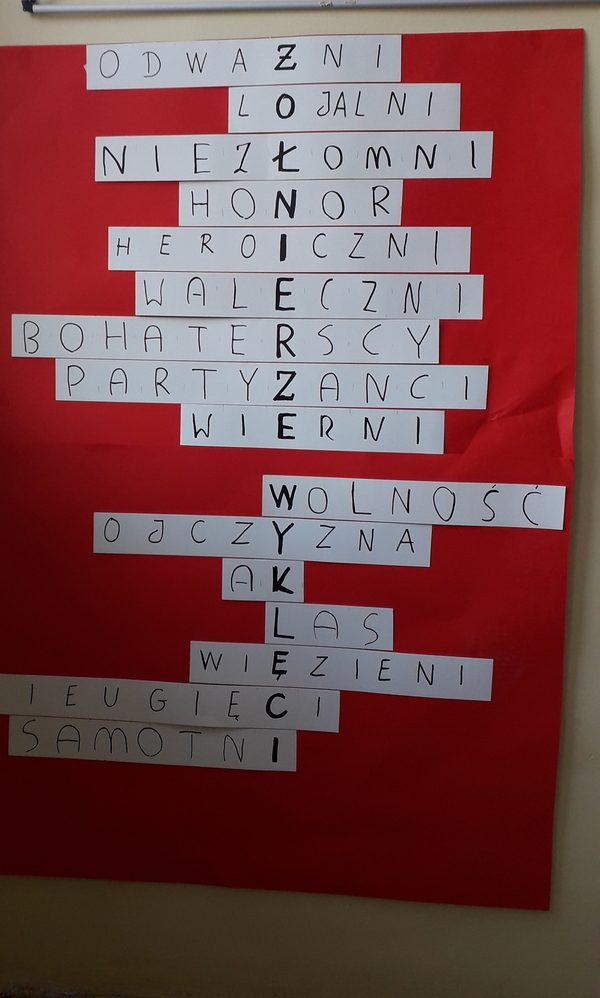 ODWAŻNI
LOJALNI
NIEZŁOMNI
HONOR
HEROICZNI
WALECZNI
BOHATERSCY
PARTYZANCI
WIERNI
WOLNOŚĆ
OJCZYZNA
AK
LAS
WIĘZIENI
IEUGIĘCI
SAMOTNI